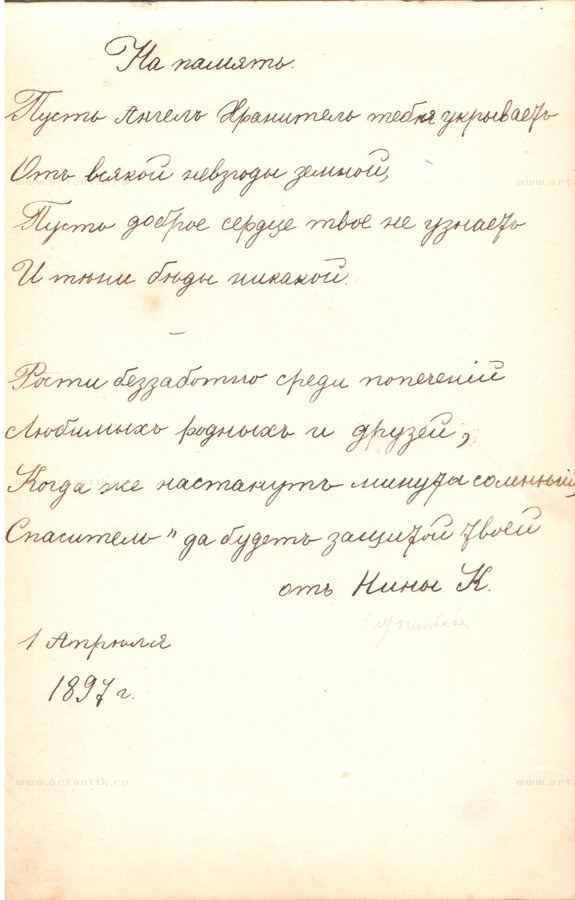 На память.
Пусть Ангелъ Хранитель тебя укрываетъ
Отъ всякой невзгоды земной,
Пусть доброе сердце твое не узнаетъ
И тѣни бѣды никакой.
Рости беззаботно среди попеченій
Любимыхъ родныхъ и друзей,
Когда же настанутъ минуты сомнѣній,
Спаситель" да будетъ защитой твоей
отъ Нины К.
1 Апрѣля
1897 г.
www.artantik.ru